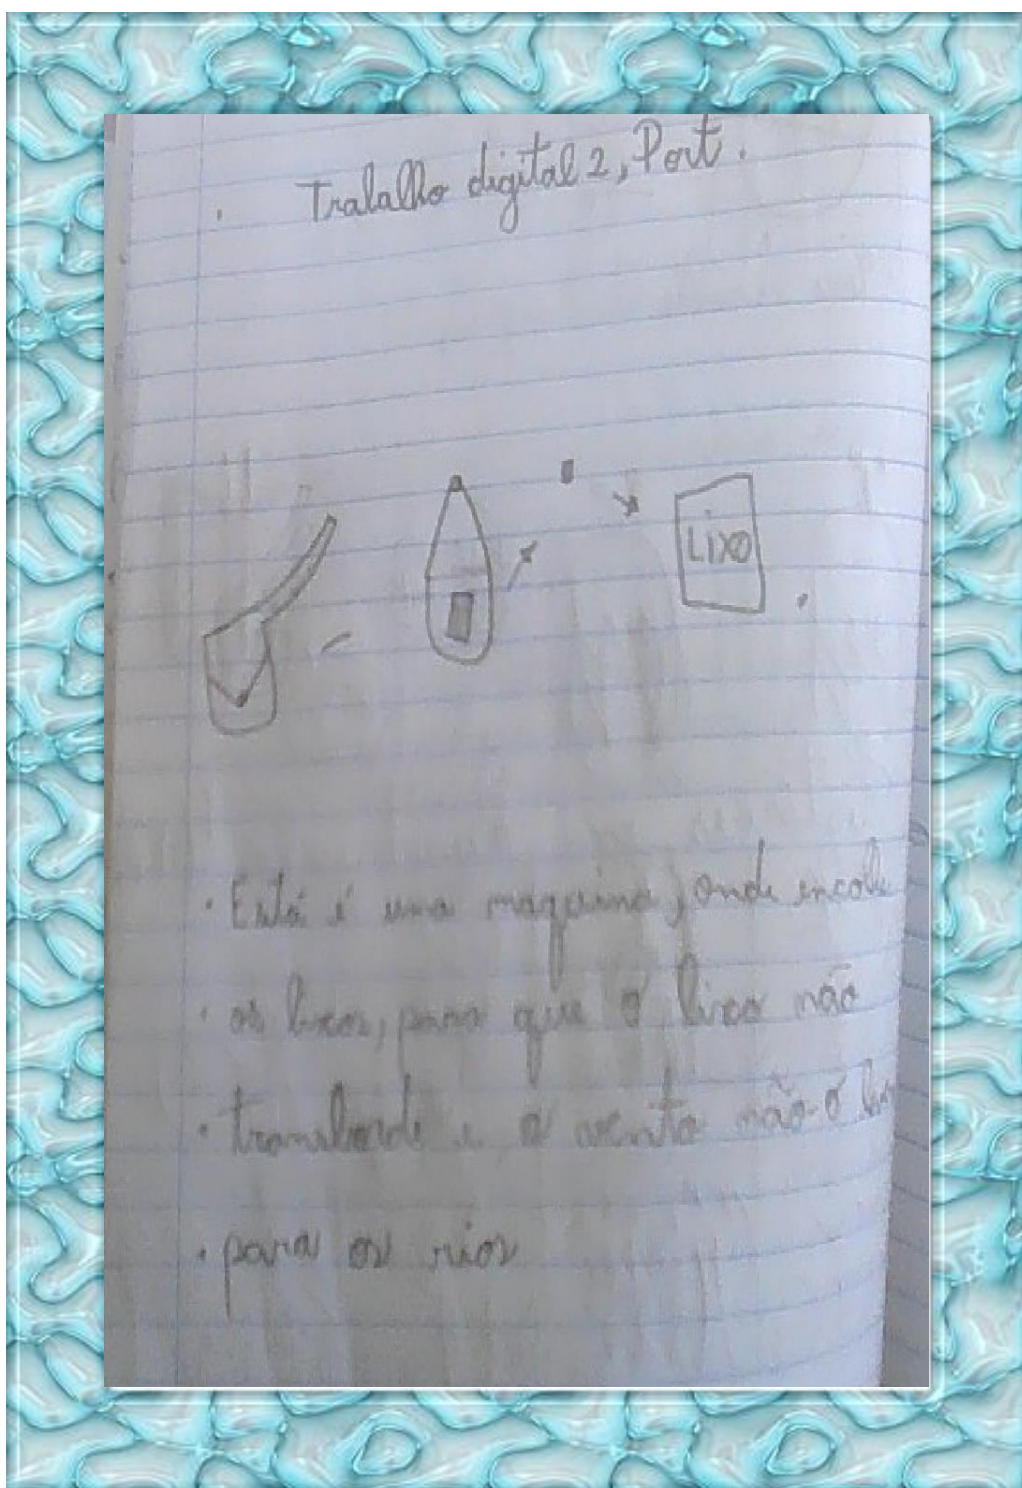 Trabalho digital 2, Port.
LIXO
. Está é uma maquina, onde encolhe
. os lixos, para que o lixo não
. transborde e o vento não o
. para os rios